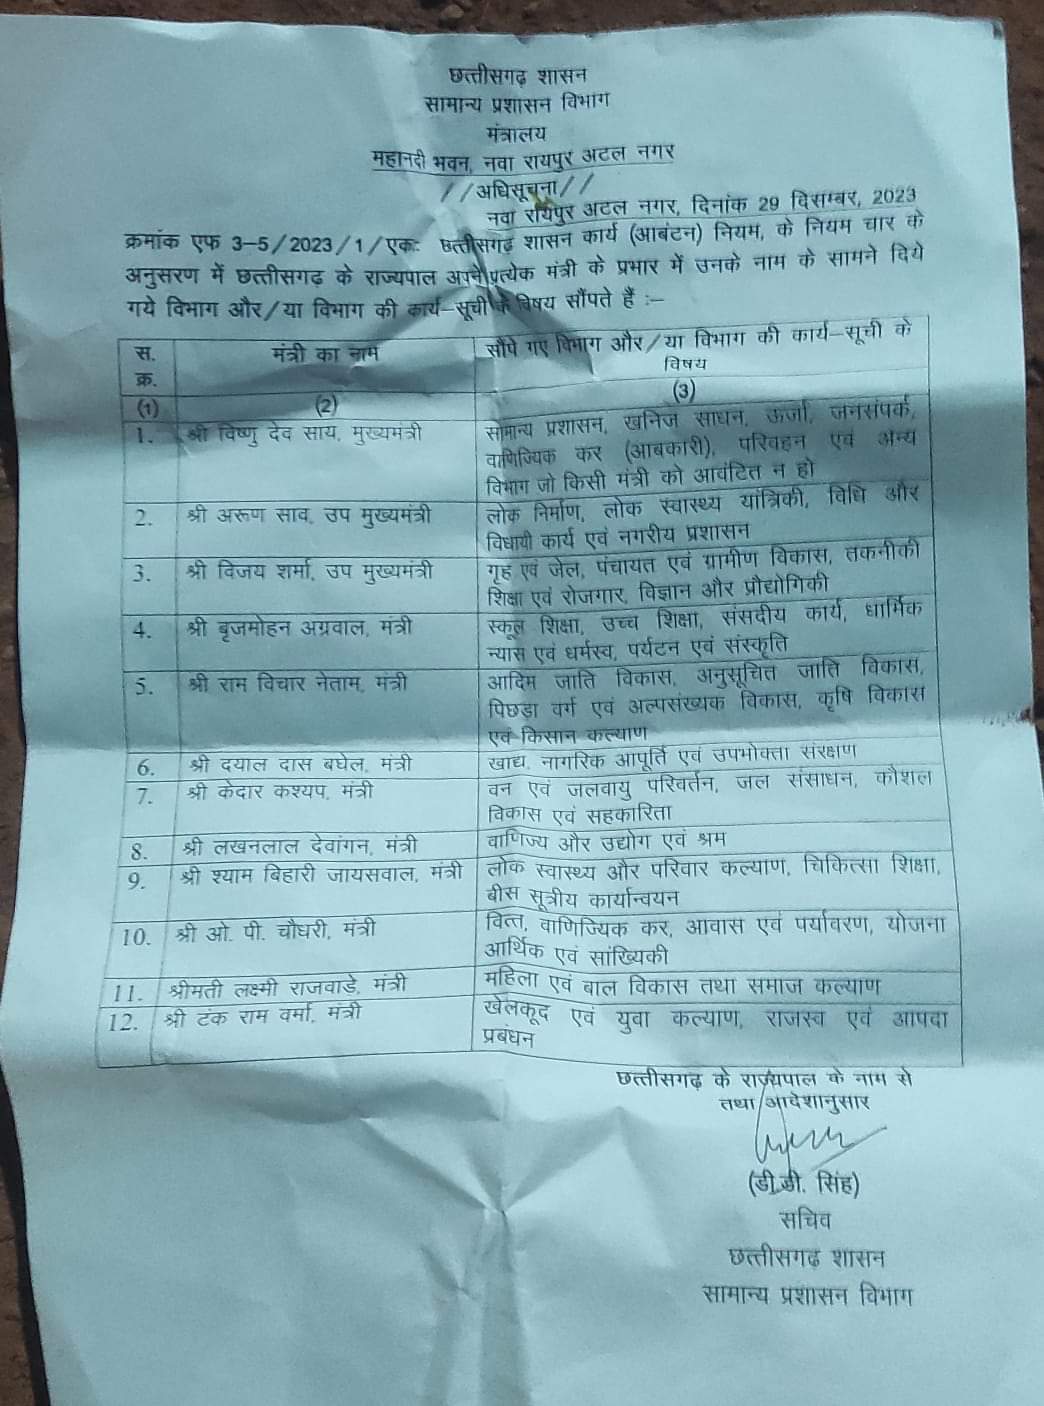 छत्तीसगढ़ शासन
सामान्य प्रशासन विभाग
मंत्रालय
महानदी भवन, नवा रायपुर अटल नगर
//अधिसूचना//
नवा रायपुर अटल नगर, दिनांक 29 दिसम्बर, 2023
क्रमांक एफ 3-5/2023/1/एकः छत्तीसगढ़ शासन कार्य (आबंटन) नियम, के नियम चार के
अनुसरण में छत्तीसगढ़ के राज्यपाल अपने प्रत्येक मंत्री के प्रभार में उनके नाम के सामने दिये
गये विभाग और/या विभाग की कार्य-सूची के विषय सौंपते हैं :-
स. क्र. मंत्री का नाम सौंपे गए विभाग और/या विभाग की कार्य-सूची के
विषय
(1) (2) (3)
1. श्री विष्णु देव साय, मुख्यमंत्री सामान्य प्रशासन, खनिज साधन, ऊर्जा, जनसंपर्क,
वाणिज्यिक कर (आबकारी), परिवहन एवं अन्य
विभाग जो किसी मंत्री को आवंटित न हो
2. श्री अरूण साव, उप मुख्यमंत्री लोक निर्माण, लोक स्वास्थ्य यांत्रिकी, विधि और
विधायी कार्य एवं नगरीय प्रशासन
3. श्री विजय शर्मा, उप मुख्यमंत्री गृह एवं जेल, पंचायत एवं ग्रामीण विकास, तकनीकी
शिक्षा एवं रोजगार, विज्ञान और प्रौद्योगिकी
4. श्री बृजमोहन अग्रवाल, मंत्री स्कूल शिक्षा, उच्च शिक्षा, संसदीय कार्य, धार्मिक
न्यास एवं धर्मस्व, पर्यटन एवं संस्कृति
5. श्री राम विचार नेताम, मंत्री आदिम जाति विकास, अनुसूचित जाति विकास,
पिछड़ा वर्ग एवं अल्पसंख्यक विकास, कृषि विकास
एवं किसान कल्याण
6. श्री दयाल दास बघेल, मंत्री खाद्य, नागरिक आपूर्ति एवं उपभोक्ता संरक्षण
7. श्री केदार कश्यप, मंत्री वन एवं जलवायु परिवर्तन, जल संसाधन, कौशल
विकास एवं सहकारिता
8. श्री लखनलाल देवांगन, मंत्री वाणिज्य और उद्योग एवं श्रम
9. श्री श्याम बिहारी जायसवाल, मंत्री लोक स्वास्थ्य और परिवार कल्याण, चिकित्सा शिक्षा,
बीस सूत्रीय कार्यान्वयन
10. श्री ओ. पी. चौधरी, मंत्री वित्त, वाणिज्यिक कर, आवास एवं पर्यावरण, योजना
आर्थिक एवं सांख्यिकी
11. श्रीमती लक्ष्मी राजवाड़े, मंत्री महिला एवं बाल विकास तथा समाज कल्याण
12. श्री टंक राम वर्मा, मंत्री खेलकूद एवं युवा कल्याण, राजस्व एवं आपदा
प्रबंधन
छत्तीसगढ़ के राज्यपाल के नाम से
तथा आदेशानुसार
(डी.डी. सिंह)
सचिव
छत्तीसगढ़ शासन
सामान्य प्रशासन विभाग